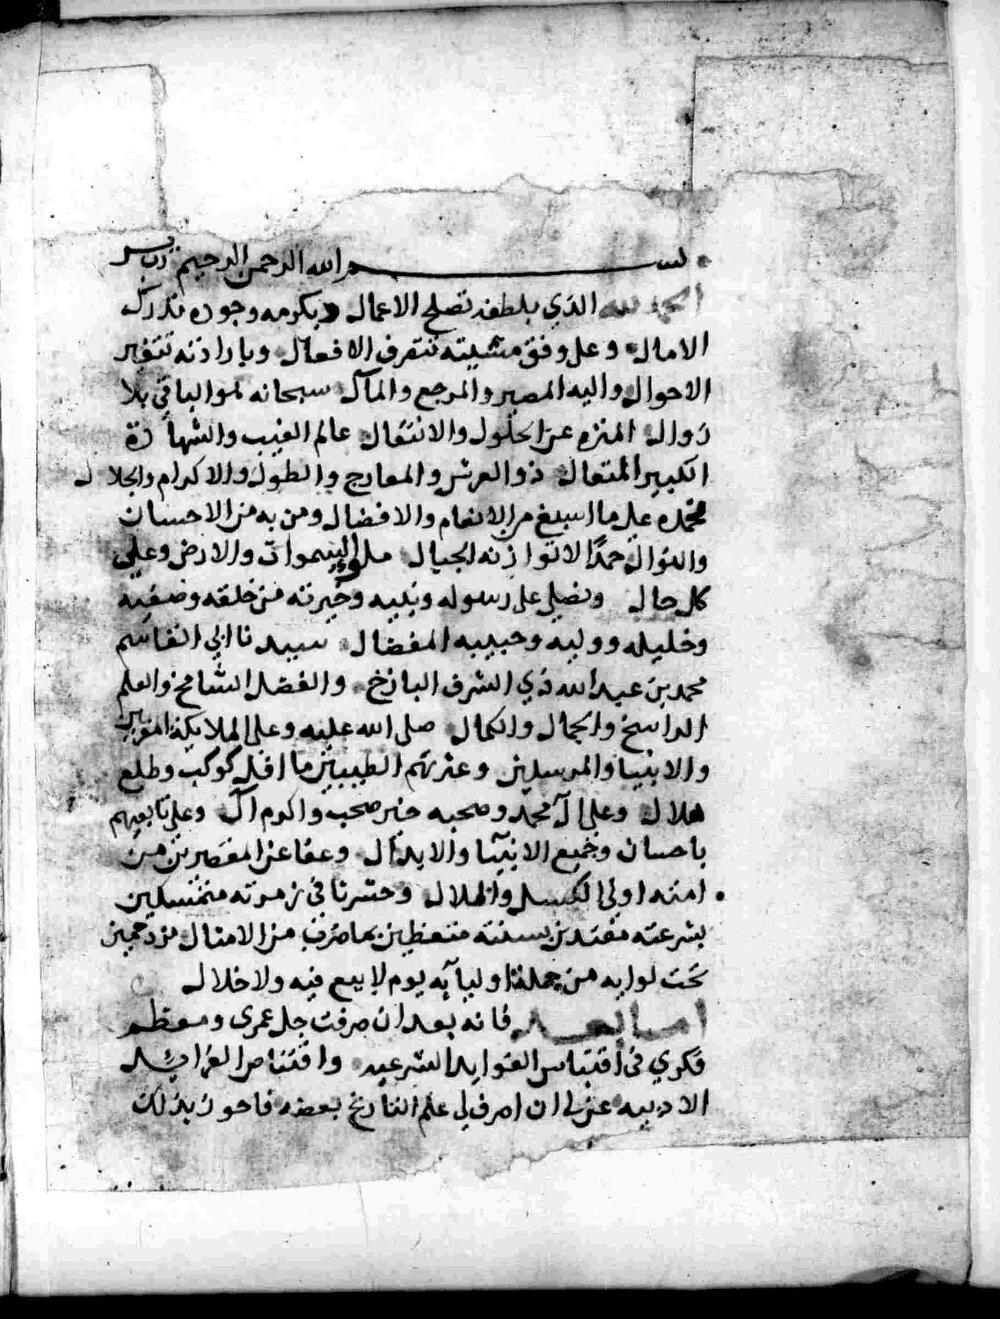 بسم الله الرحمن الرحيم رب يسر
الحمد لله الذي بلطفه تصلح الاعمال وبكرمه وجوده تدرك
الامال وعلى وفق مشيته تتصرف الافعال وبارادته تتغير
الاحوال واليه المصير والمرجع والمآل سبحانه هو الباقي بلا
زوال المنزه عن الحلول والانتقال عالم الغيب والشهادة
الكبير المتعال ذو العرش والمعارج والطول والاكرام والجلال
نحمده على ما اسبغ من الانعام والافضال ومن به من الاحسان
والنوال حمدًا لا توازنه الجبال ملء السموات والارض وعلى
كل حال ونصلي على رسوله ونبيه وخيرته من خلقه وصفيه
وخليله ووليه وحبيبه المفضال سيدنا ابي القاسم
محمد بن عبد الله ذي الشرف الباذخ والفضل الشامخ والعلم
الراسخ والجمال والكمال صلى الله عليه وعلى الملايكة المقربين
والانبيا والمرسلين وعترتهم الطيبين ما افل كوكب وطلع
هلال وعلى آل محمد وصحبه خير صحب واكرم آل وعلى تابعيهم
باحسان وجميع الانبيآ والابدال وعفا عن المقصرين من
امته اولي الكسل والملال وحشرنا في زمرته متمسكين
بشرعته مقتدين بسنته متعظين بما ضرب من الامثال مزدحمين
تحت لوايه من جملة اوليآيه يوم لا بيع فيه ولا خلال
اما بعد فانه بعد ان صرفت جل عمري ومعظم
فكري في اقتباس الفوايد الشرعيه واقتناص الفرايد
الادبيه عن لي ان اصرف لي علم التاريخ بعضه فاحوز بذلك